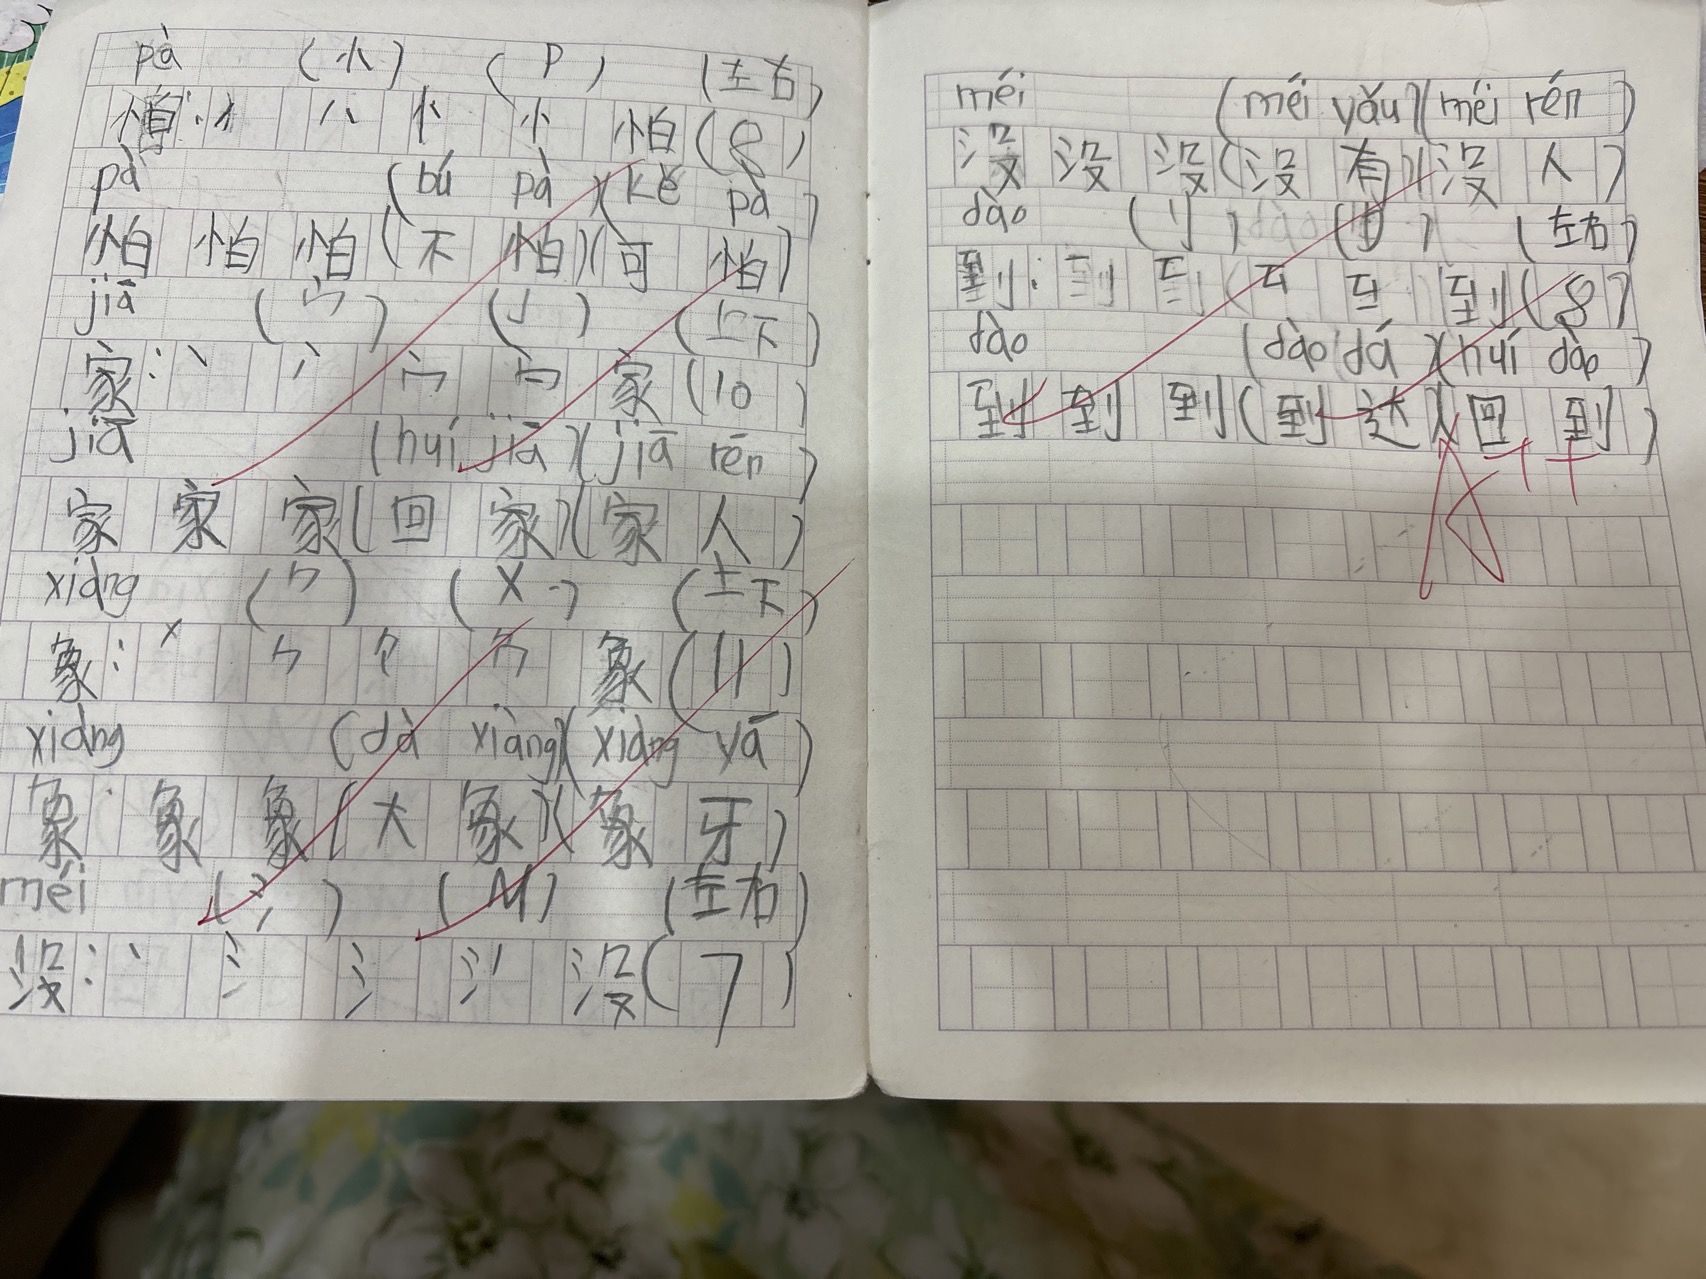 pà (忄) (P) (左右)
怕: 怕 (8)
pà (bú pà)(kě pà)
怕 怕 怕 (不 怕)(可 怕)
jiā (宀) (J) (上下)
家: 丶 宀 家 (10)
jiā (huí jiā)(jiā rén)
家 家 家 (回 家)(家 人)
xiàng (⺈) (X) (上下)
象: ⺈ 象 (11)
xiàng (dà xiàng)(xiàng yá)
象 象 象 (大 象)(象 牙)
méi (氵) (M) (左右)
没: 丶 氵 没 (7)
méi (méi yǒu)(méi rén)
没 没 没 (没 有)(没 人)
dào (刂) (D) (左右)
到: 到 (8)
dào (dào dá)(huí dào)
到 到 到 (到 达)(回 到)
A++